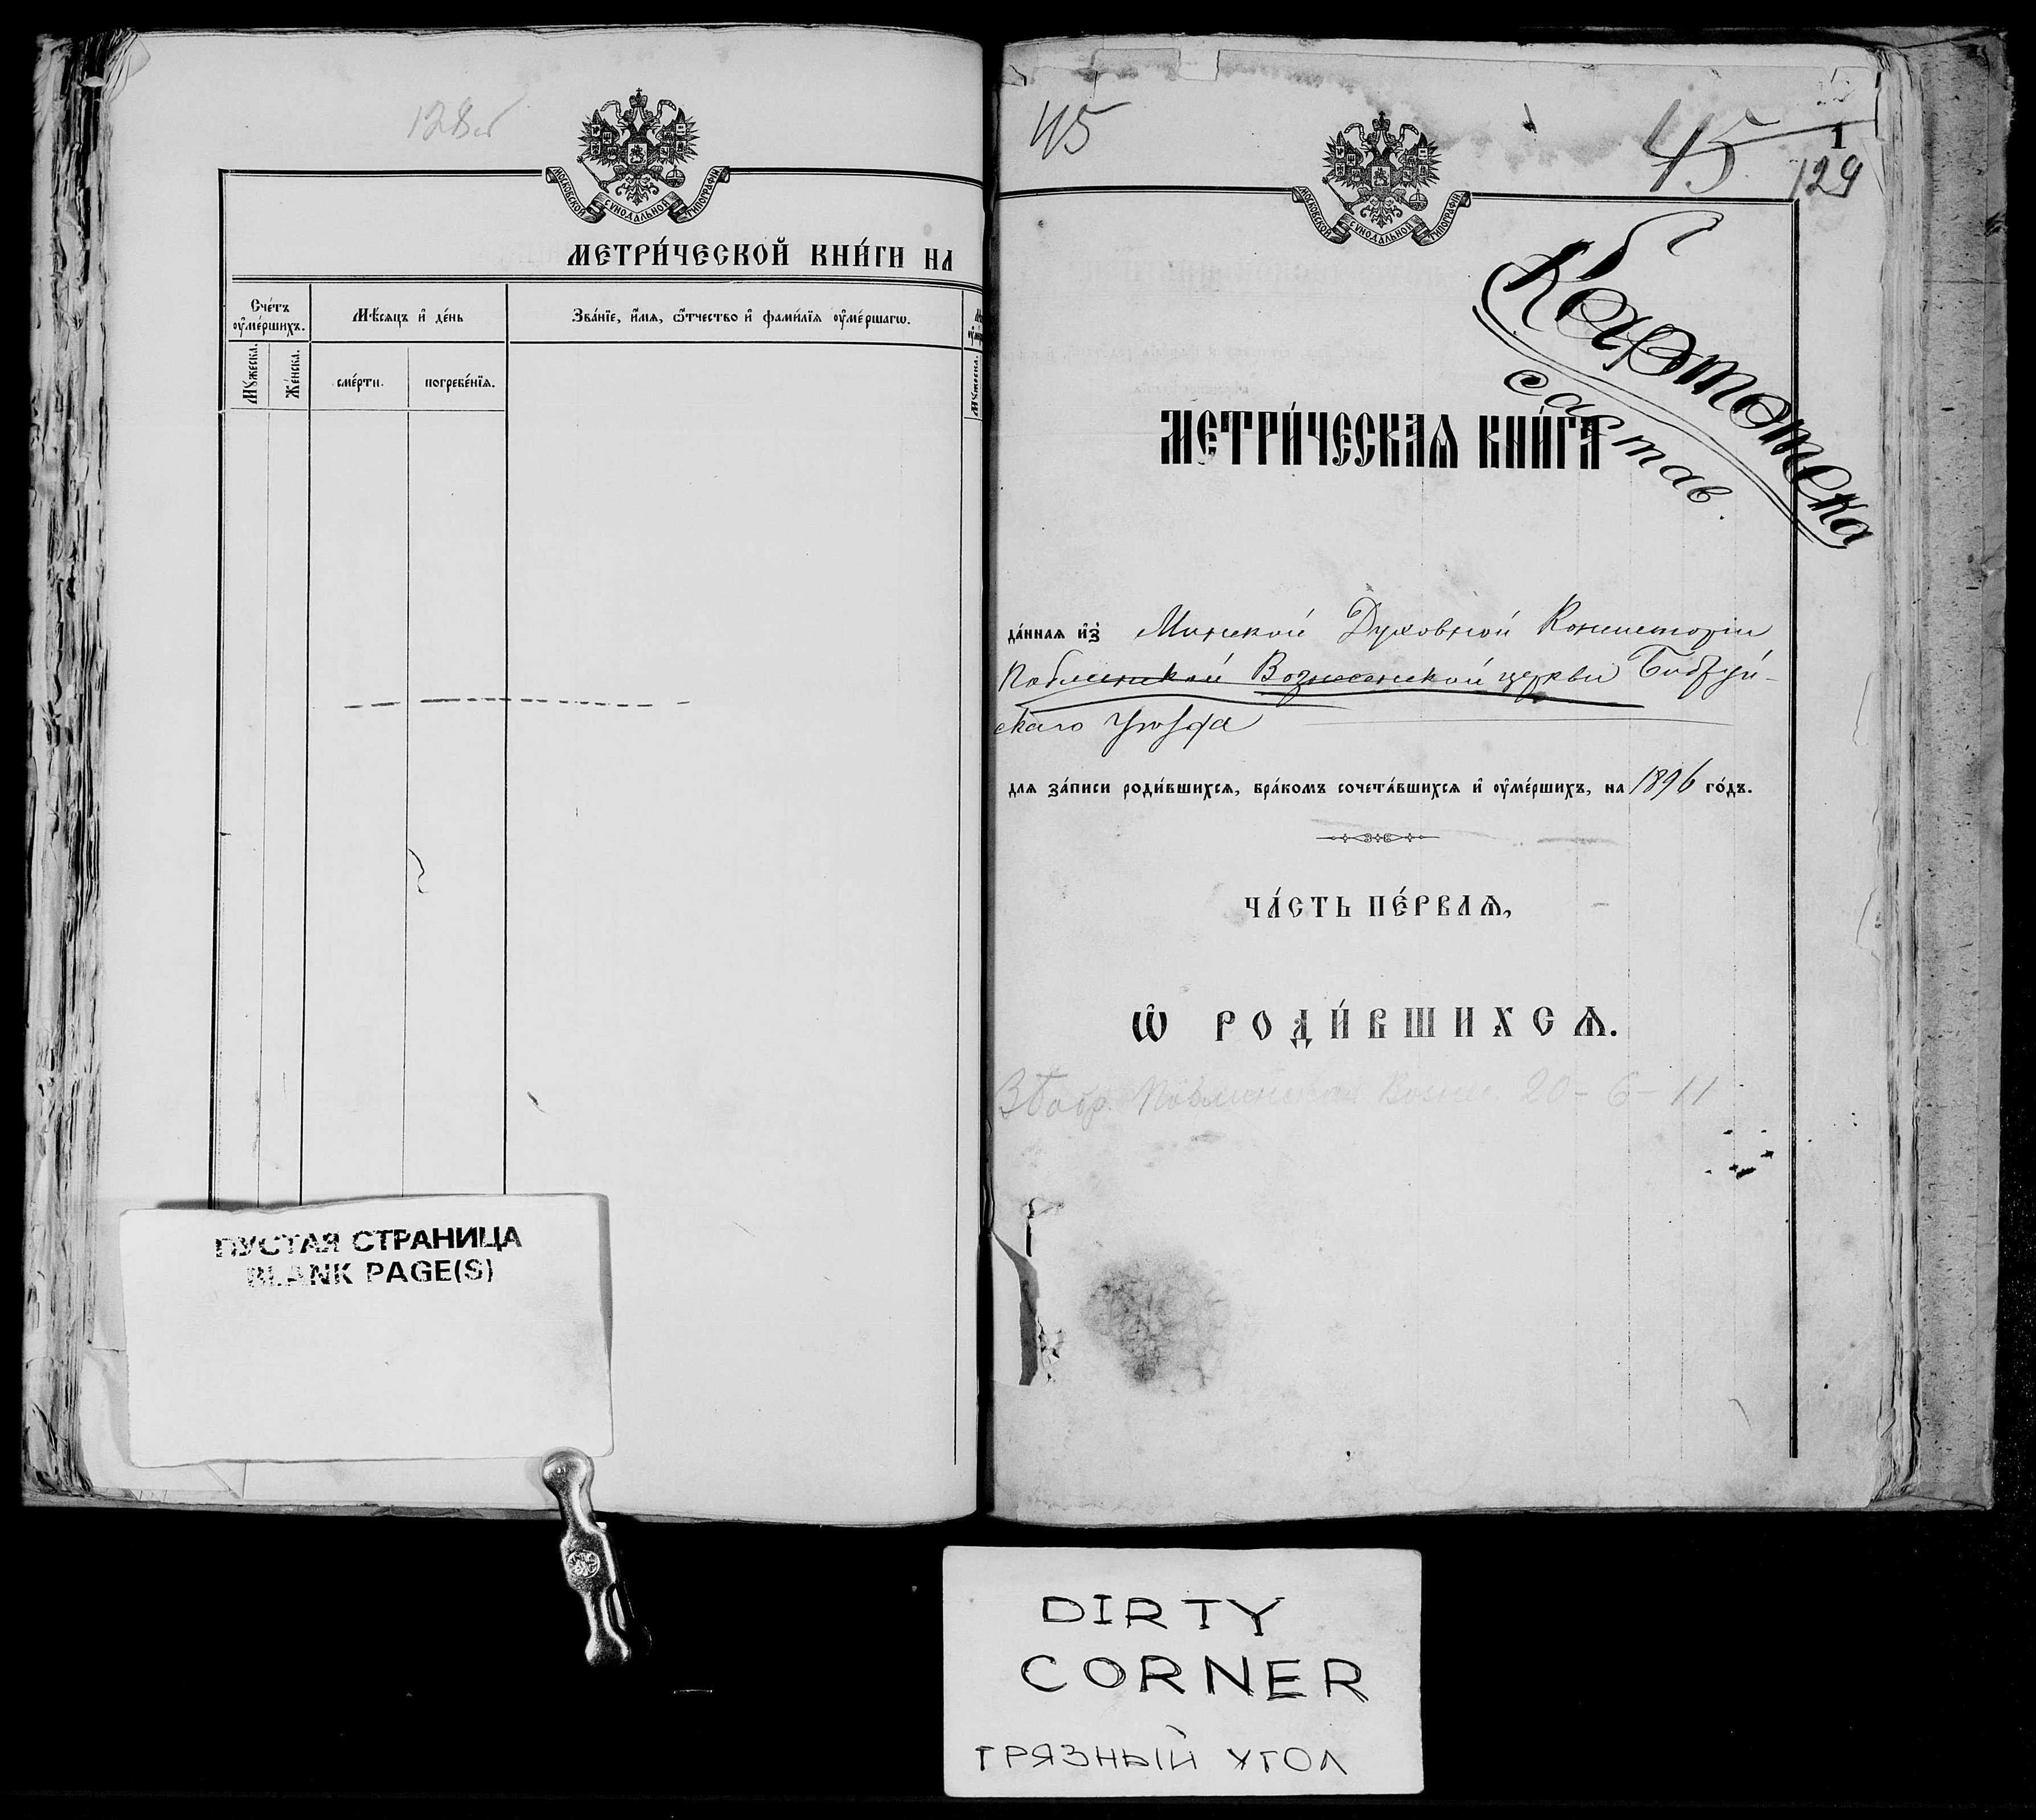 128об
МОСКОВСКОЙ СѴНОДАЛЬНОЙ ТИПОГРАФІИ
МЕТРИ́ЧЕСКОЙ КНИ́ГИ НА
Сче́тъ ᲂу҆ме́ршихъ.
Мѣ́сѧцъ и҆ де́нь
Зва́нїе, и҆́мѧ, ѻ҆́тчество и҆ фами́лїѧ ᲂу҆ме́ршагѡ.
Мꙋ́жеска.
Же́нска.
сме́рти.
погребе́нїѧ.
Мꙋ́жеска.
ПУСТАЯ СТРАНИЦА
BLANK PAGE(S)
45
45
1
129
МОСКОВСКОЙ СѴНОДАЛЬНОЙ ТИПОГРАФІИ
Картотека
состав.
МЕТРИ́ЧЕСКАѦ КНИ́ГА
да́ннаѧ и҆з̾ Минской Духовной Консисторіи
Вознесенской церкви Бобруй-
скаго уѣзда
длѧ за́писи роди́вшихсѧ, бра́комъ сочета́вшихсѧ и҆ ᲂу҆ме́ршихъ, на 1896 го́дъ.
ЧА́СТЬ ПЕ́РВАѦ,
Ѡ҆ РОДИ́ВШИХСѦ.
20-6-11
DIRTY
CORNER
ГРЯЗНЫЙ УГОЛ